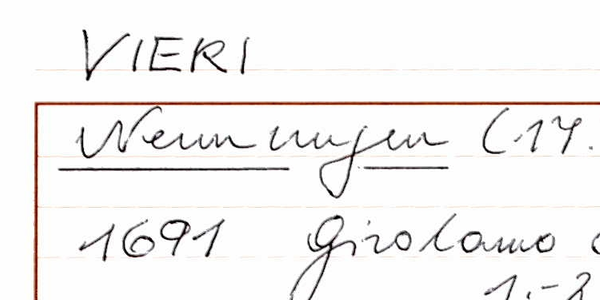 VIERI
Nennungen (17.
1691 Girolamo
1.-2